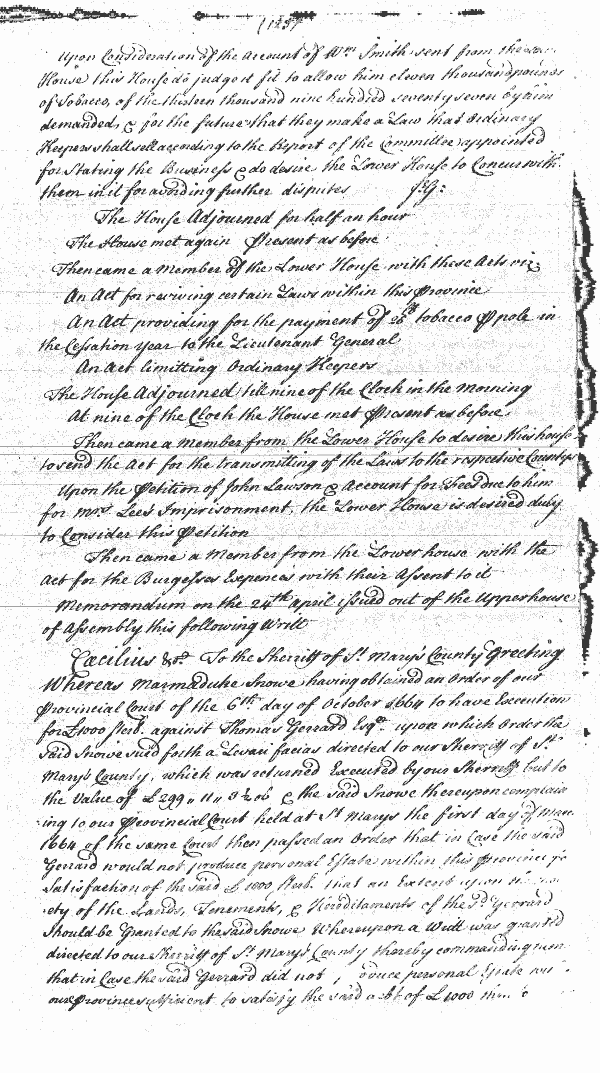 Upon Consideration of the Account of Wm Smith sent from the
House this House do judge it fit to allow him eleven thousand pounds
of Tobacco, of the thirteen thousand nine hundred seventy seven by him
demanded, & for the future that they make a Law that Ordinary
Keepers shall sell according to the Report of the Committee appointed
for Stating the Business & do desire the Lower House to Concur with
them in it for avoiding further disputes
The House Adjourned for half an hour
The House met again Present as before
Then came a Member of the Lower House with these Acts viz
An Act for reviving certain Laws within this Province
An Act providing for the payment of 26 tobacco P pole in
the Cessation year to the Lieutenant General
An Act limitting Ordinary Keepers
The House Adjourned till nine of the Clock in the Morning
At nine of the Clock the House met Present as before
Then came a Member from the Lower House to desire this house
to send the Act for the transmitting of the Laws to the respective Countys
Upon the Petition of John Lawson & Account for Fees due to him
for Mrs Lees Imprisonment, the Lower House is desired duly
to Consider this Petition
Then came a Member from the Lower house with the
Act for the Burgesses Expences with their Assent to it
Memorandum on the 24th April issued out of the Upperhouse
of Assembly this following Writt
Cæcilius &c To the Sherriff of St Mary's County Greeting
Whereas Marmaduke Snowe having obtained an Order of our
Provincial Court of the 6th day of October 1664 to have Execution
for £1000 Sterl. against Thomas Gerrard Esqr upon which Order the
said Snowe sued forth a Levari facias directed to our Sherriff of St
Mary's County, which was returned Executed by our Sherriff but to
the Value of £299 " 11 " 3 ½ & the said Snowe thereupon complain
ing to our Provincial Court held at St Marys the first day of
1664 of the same Court then passed an Order that in Case the said
Gerrard would not produce personal Estate within this Province
Satisfaction of the said £1000 Sterl. that an Extent upon
ety of the Lands, Tenements, & Hereditaments of the sd Gerrard
Should be Granted to the said Snowe Whereupon a Writt was granted
directed to our Sherriff of St Mary's County thereby commanding
that in Case the said Gerrard did not personal Estate
our Province sufficient to satisfy the said of £1000